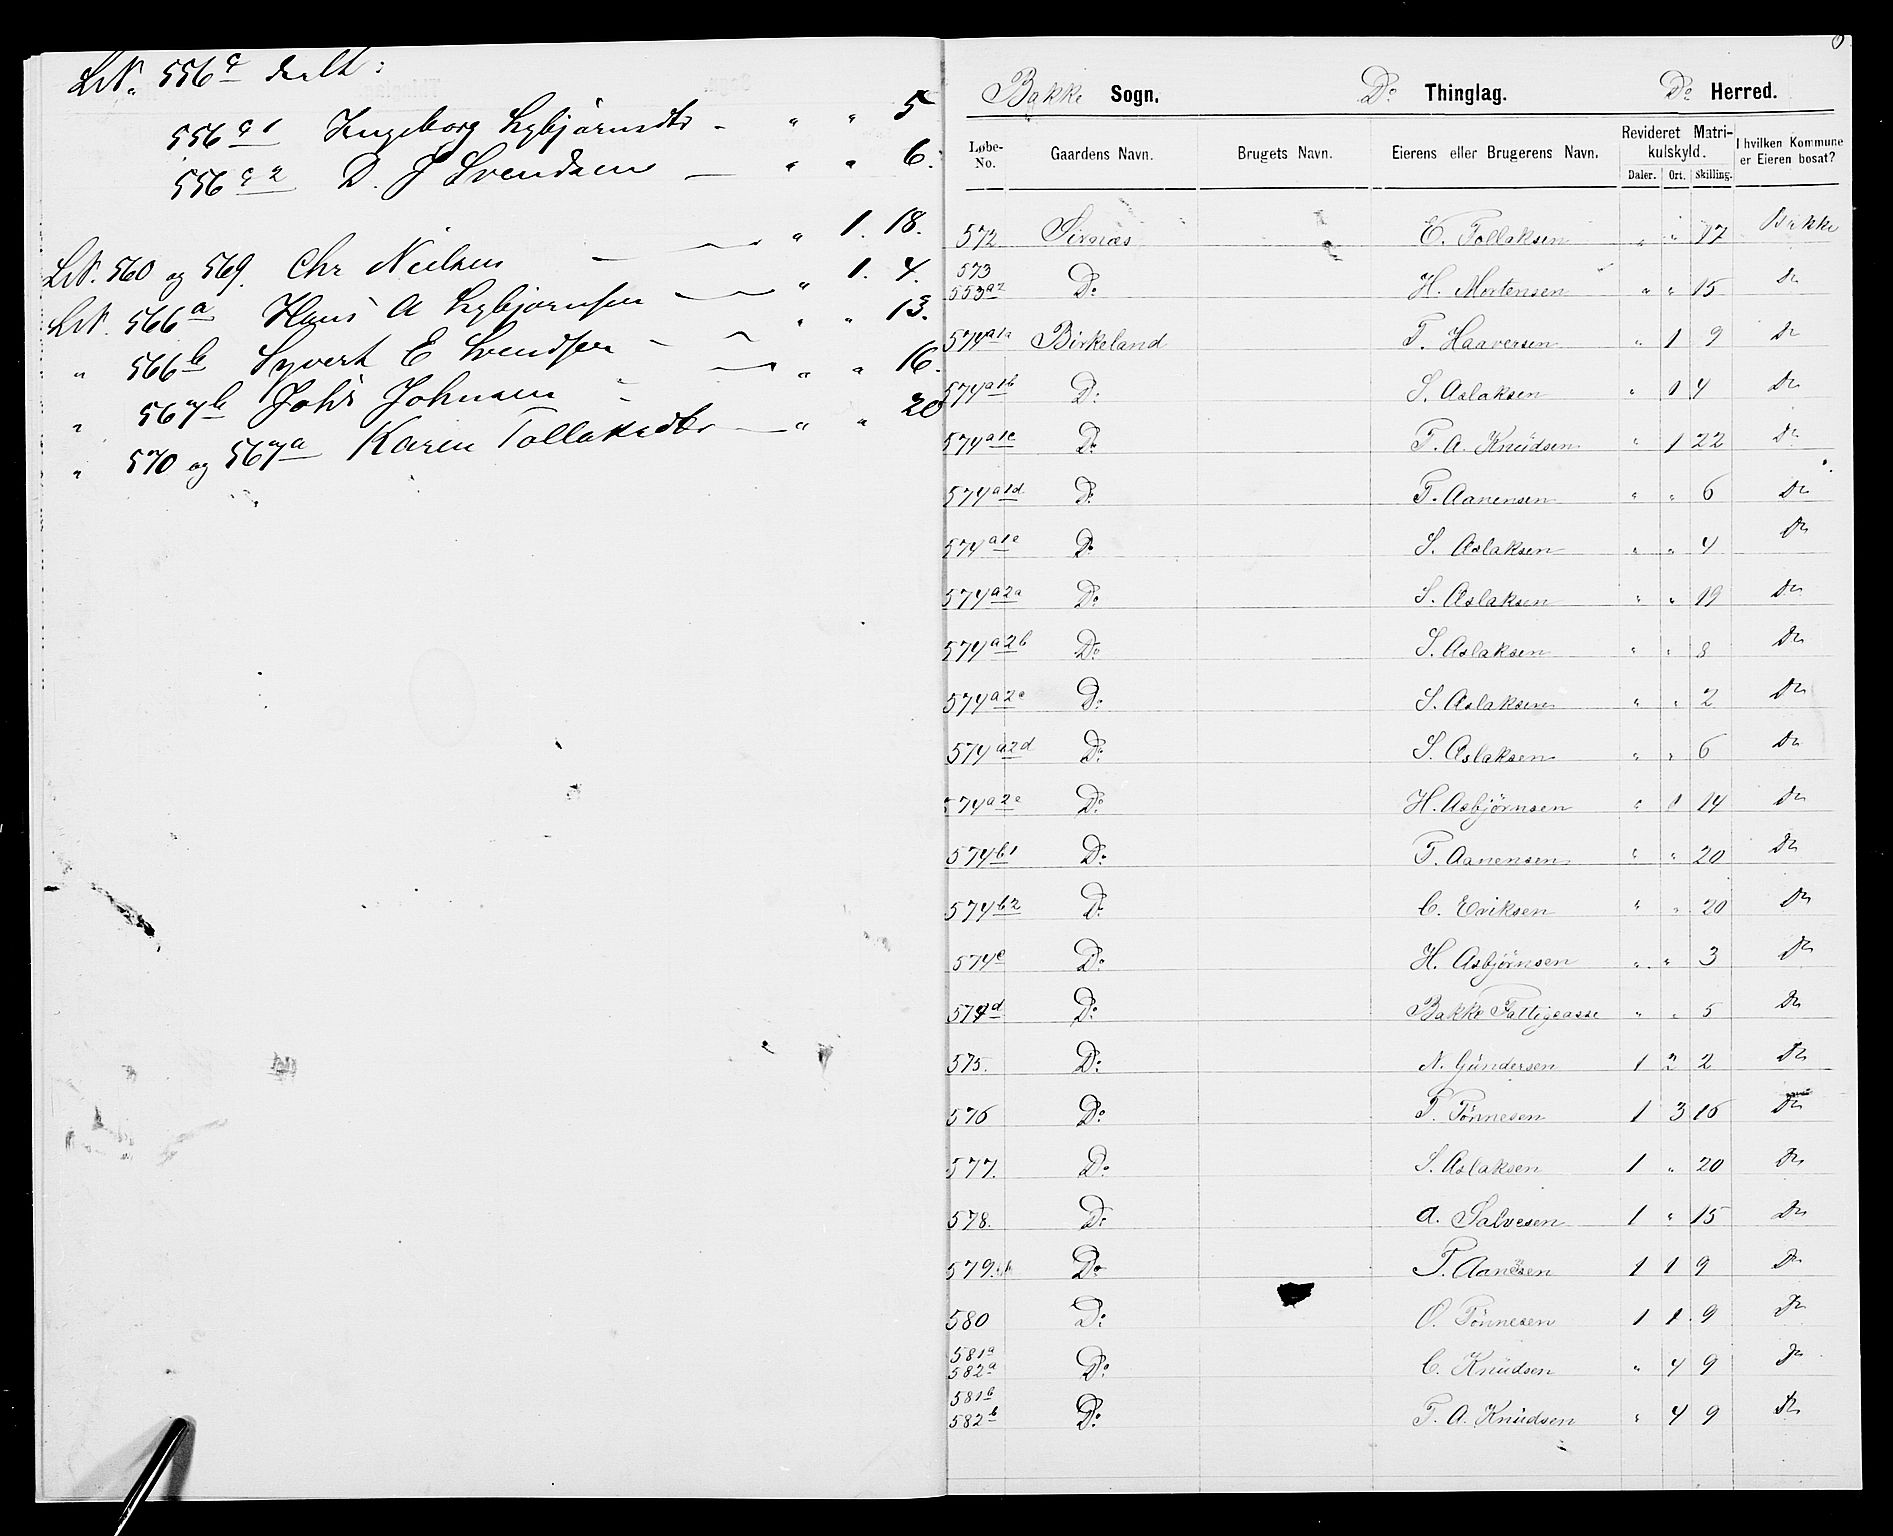 LN. 556c delt:
556c1 Ingeborg Esbjørnsdtr - " " 5
556c2 D. J Svendsen — " " 6.
LN. 560 og 569. Chr Nielsen — " 1. 18.
LN. 566a Hans A Esbjørnsen — " 1. 4.
" 566b Syvert E Svendsen - " " 13.
" 567b Johs Johnsen - " " 16.
" 570 og 567a Karen Tollaksdtr — " " 20
Bakke Sogn. Do Thinglag. Do Herred.
Løbe-No. Gaardens Navn. Brugets Navn. Eierens eller Brugerens Navn. Revideret Matrikulskyld. I hvilken Kommune er Eieren bosat?
Daler. Ort. Skilling.
572 Sirnæs E. Tollaksen " " 17 Bakke
573 553a2 Do H. Mortensen " " 15 Do
574a1a Birkeland T. Haaversen " 1 9 Do
574a1b Do S. Aslaksen " 1 4 Do
574a1c Do T. A. Knudsen " 1 22 Do
574a1d Do T. Aanensen " " 6 Do
574a1e Do S. Aslaksen " " 4 Do
574a2a Do S. Aslaksen " " 19 Do
574a2b Do S. Aslaksen " " 8 Do
574a2c Do S. Aslaksen " " 2 Do
574a2d Do S. Aslaksen " " 6 Do
574a2e Do H. Asbjörnsen " 1 14 Do
574b1 Do T. Aanensen " " 20 Do
574b2 Do C. Eriksen " " 20 Do
574c Do H. Asbjörnsen " " 3 Do
574d Do Bakke Fattigcasse " " 5 Do
575. Do N. Gundersen 1 2 2 Do
576 Do T. Tönnesen 1 3 16 Do
577. Do S. Aslaksen 1 " 20 Do
578. Do A. Salvesen 1 " 15 Do
579. Do T. Aanesen 1 1 9 Do
580 Do O. Tönnesen 1 1 9 Do
581a 582a Do C. Knudsen " 4 9 Do
581b 582b Do T. A. Knudsen " 4 9 Do